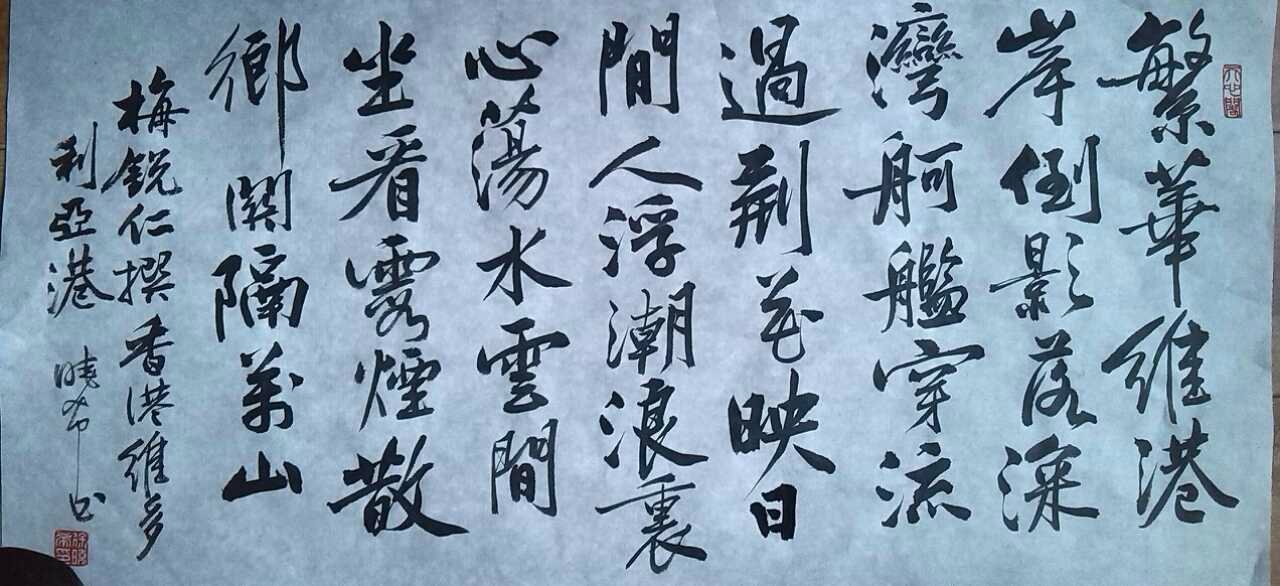 繁華維港
岸倒影落深
灣舸艦穿流
過荆花映日
間人浮潮浪裏
心蕩水雲間
坐看雾煙散
鄉関隔萬山
梅銳仁撰香港維多
利亞港 曉希书